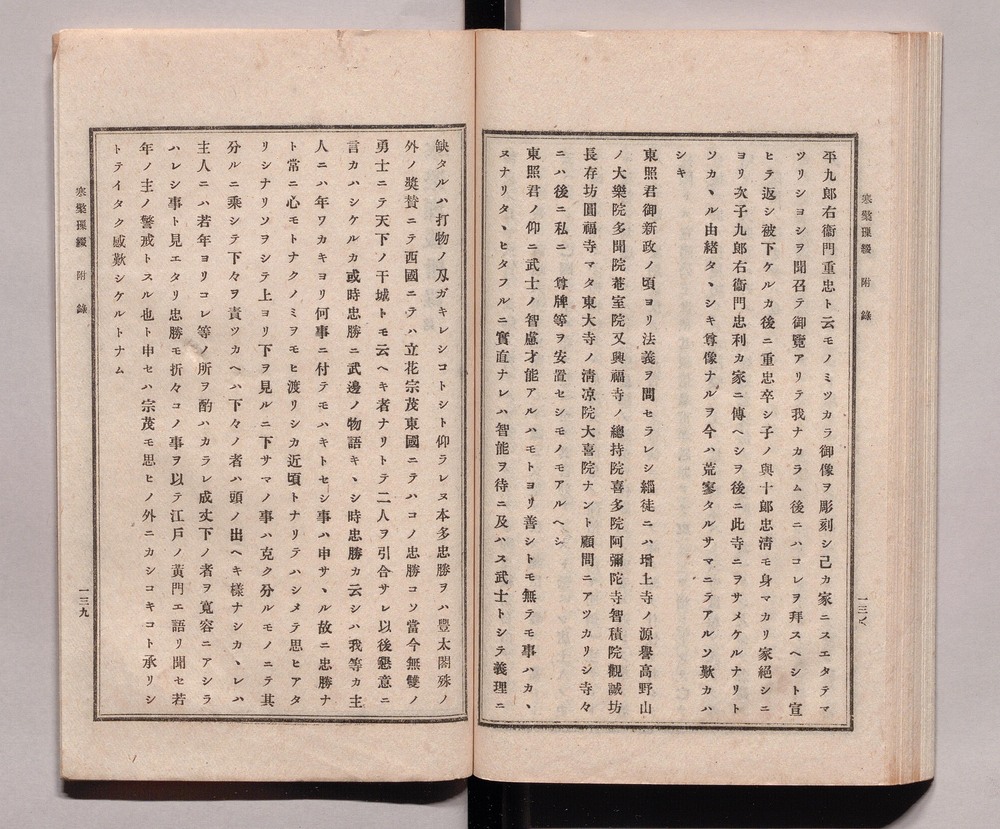 寒檠璅綴　附錄
一三八
平九郎右衞門重忠ト云モノミツカラ御像ヲ彫刻シ己カ家ニスエタテマ
ツリシヨシヲ聞召テ御覽アリテ我ナカラム後ニハコレヲ拜スヘシト宣
ヒテ返シ被下ケルカ後ニ重忠卒シ子ノ與十郎忠淸モ身マカリ家絕シニ
ヨリ次子九郎右衞門忠利カ家ニ傳ヘシヲ後ニ此寺ニヲサメケルナリト
ソカヽル由緖タヽシキ尊像ナルヲ今ハ荒寥タルサマニテアルソ歎カハ
シキ
東照君御新政ノ頃ヨリ法義ヲ問セラレシ緇徒ニハ增上寺ノ源譽高野山
ノ大樂院多聞院菴室院又興福寺ノ總持院喜多院阿彌陀寺智積院觀誠坊
長存坊圓福寺マタ東大寺ノ淸凉院大喜院ナント顧問ニアツカリシ寺々
ニハ後ニ私ニ　尊牌等ヲ安置セシモノモアルヘシ
東照君ノ仰ニ武士ノ智慮才能アルハモトヨリ善シトモ無テモ事ハカヽ
ヌナリタヽヒタフルニ實直ナレハ智能ヲ待ニ及ハス武士トシテ義理ニ
缺タルハ打物ノ刃ガキレシコトシト仰ラレヌ本多忠勝ヲハ豐太閤殊ノ
外ノ奬賛ニテ西國ニテハ立花宗茂東國ニテハコノ忠勝コソ當今無雙ノ
勇士ニテ天下ノ干城トモ云ヘキ者ナリトテ二人ヲ引合サレ以後懇意ニ
言カハシケルカ或時忠勝ニ武邊ノ物語キヽシ時忠勝カ云シハ我等カ主
人ニハ年ワカキヨリ何事ニ付テモハキトセシ事ハ申サヽル故ニ忠勝ナ
ト常ニ心モトナクノミヲモヒ渡リシカ近頃トナリテハシメテ思ヒアタ
リシナリソヲシテ上ヨリ下ヲ見ルニ下サマノ事ハ克ク分ルモノニテ其
分ルニ乘シテ下々ヲ責ツカヘハ下々ノ者ハ頭ノ出ヘキ樣ナシカヽレハ
主人ニハ若年ヨリコレ等ノ所ヲ酌ハカラレ成丈下ノ者ヲ寬容ニアシラ
ハレシ事ト見エタリ忠勝モ折々コノ事ヲ以テ江戶ノ黃門エ語リ聞セ若
年ノ主ノ警戒トスル也ト申セハ宗茂モ思ヒノ外ニカシコキコト承リシ
トテイタク感歎シケルトナム
寒檠璅綴　附錄
一三九